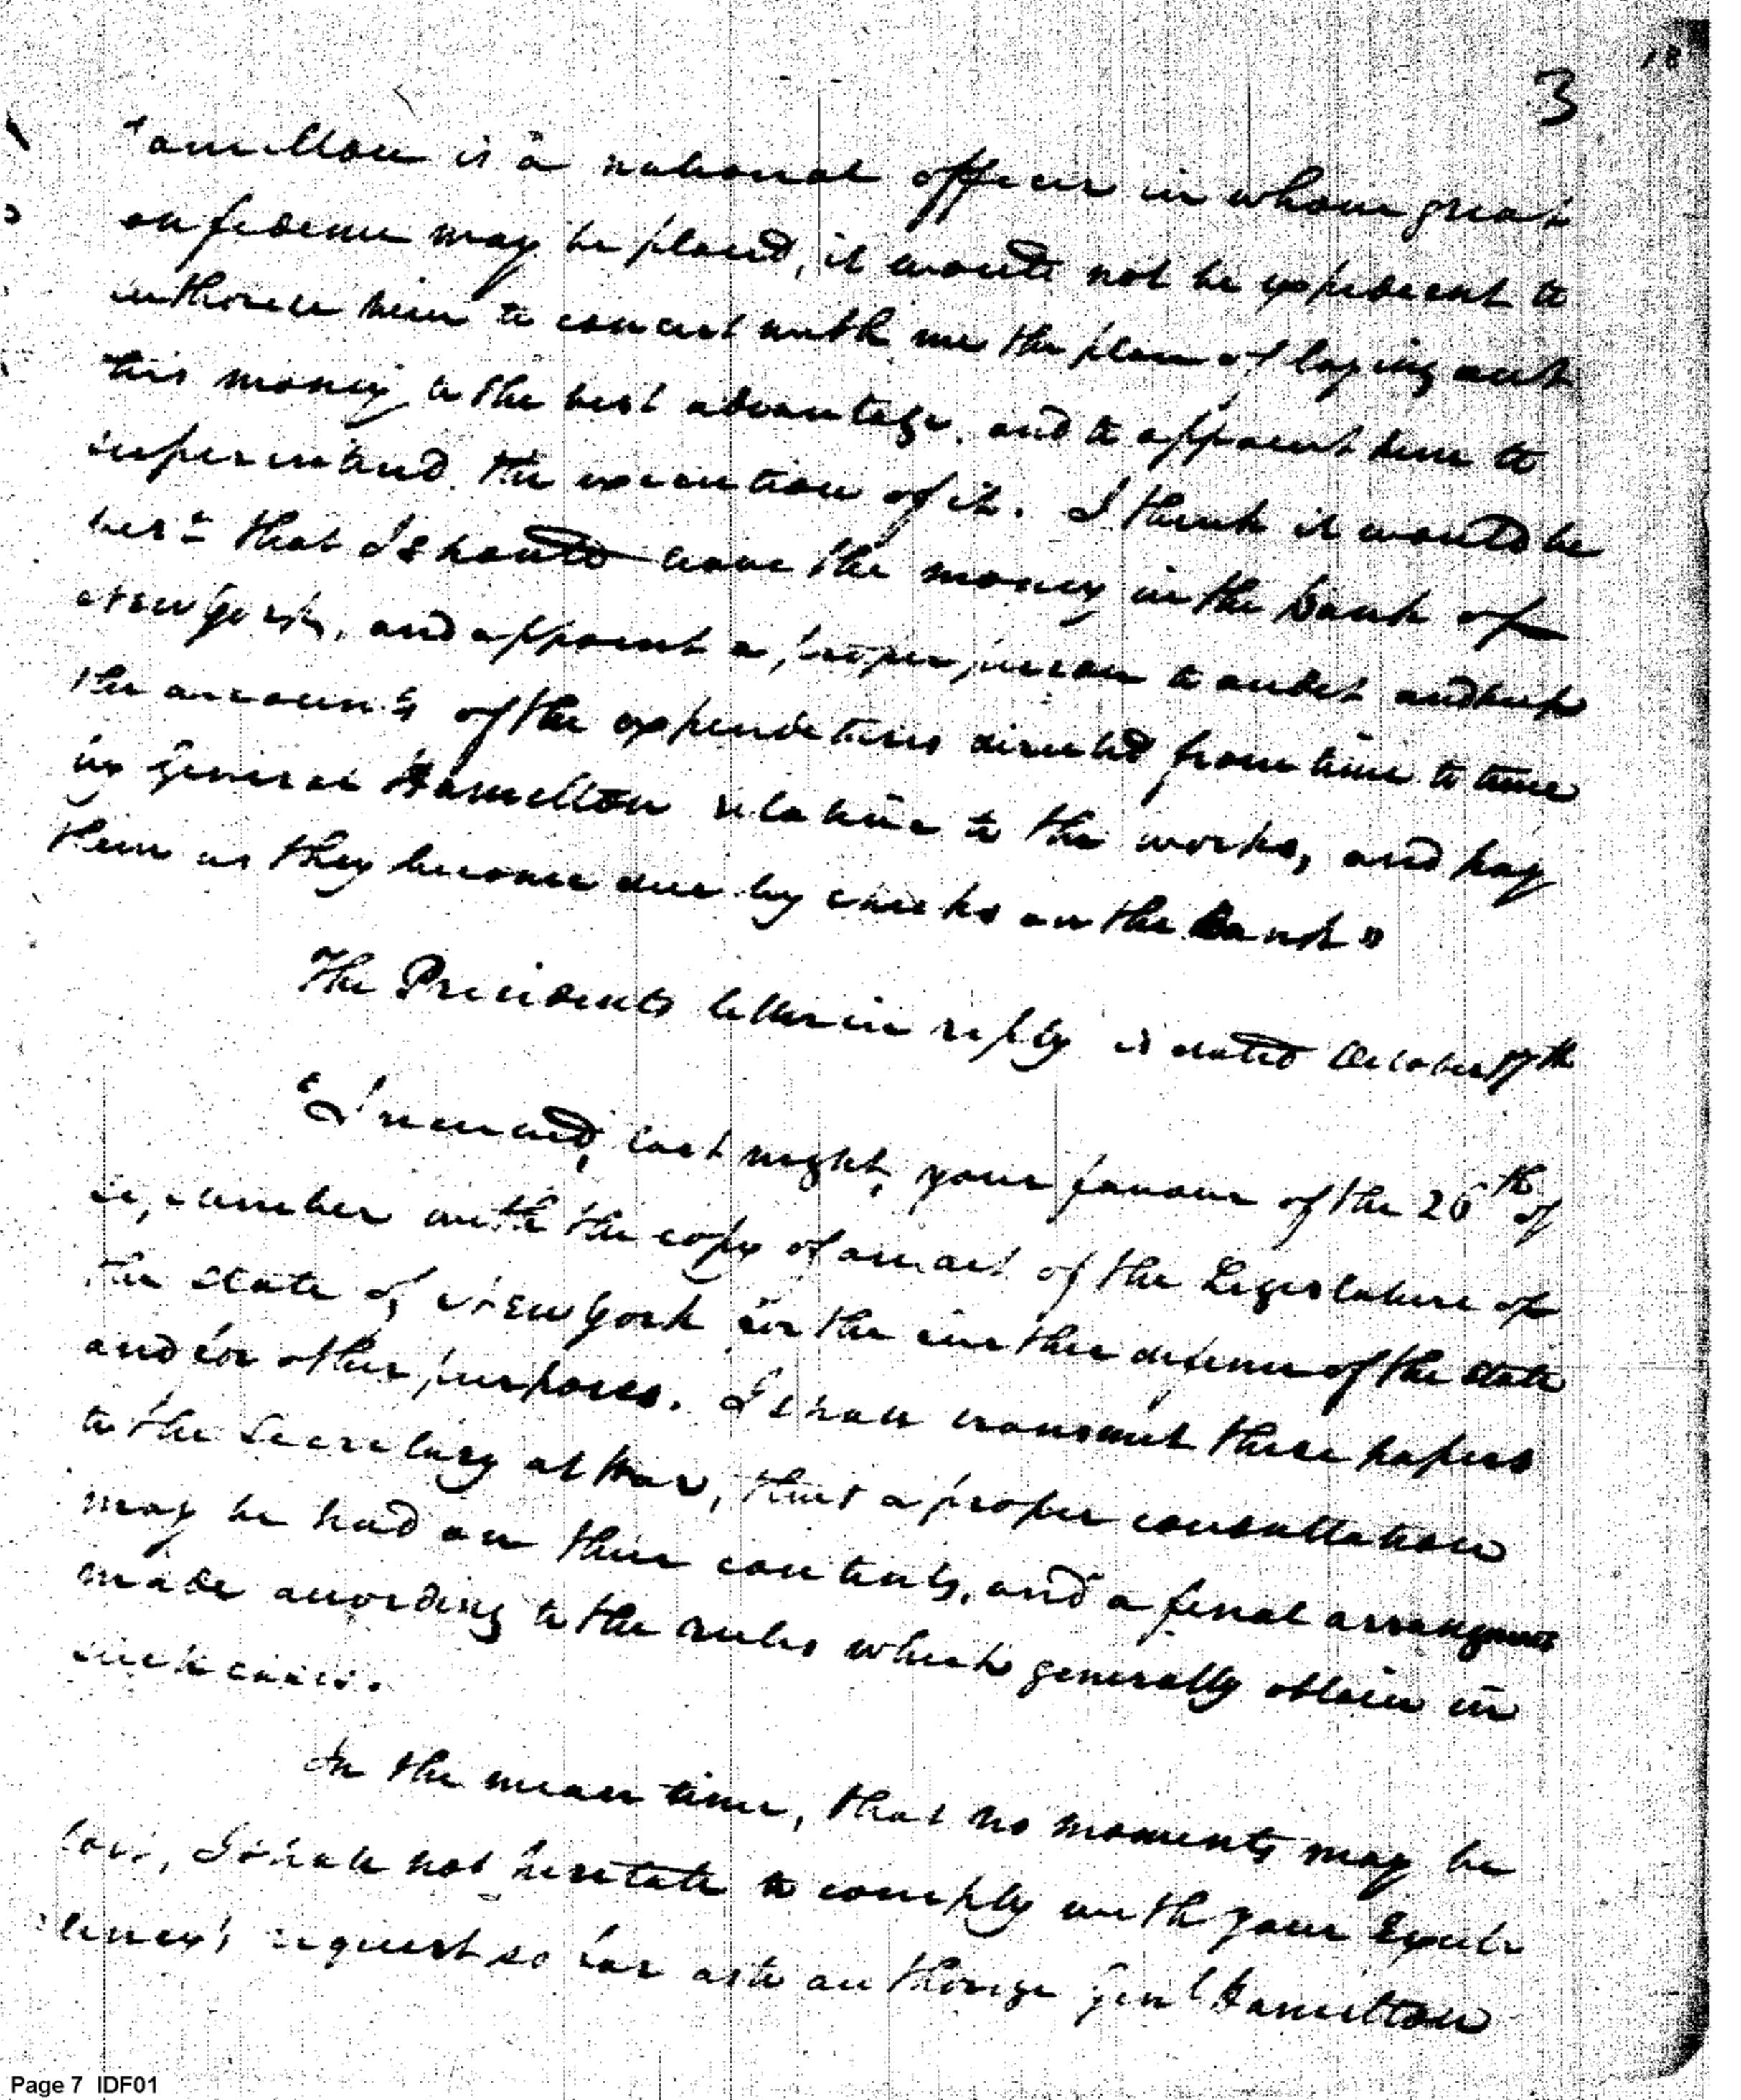 18
3
"amilton is a national officer in whom great
onfidence may be placed, it would not be expedient to
authorize him to concert with me the plan of laying out
this money to the best advantage, and to appoint him to
superintend the execution of it. I think it would be
best that I should leave the money in the bank of
New York, and appoint a proper person to audit and keep
the accounts of the expenditures directed from time to time
by General Hamilton relative to the works, and pay
them as they become due by checks on the Bank"
The Presidents letter in reply is dated October
"I received, last night, your favour of the 26th of
September with the copy of an act of the Legislature of
the State of New York for the further defense of the State
and for other purposes. I shall transmit these papers
to the Secretary at War, that a proper consultation
may be had on their contents, and a final arrangement
made according to the rules which generally obtain in
such cases.
In the mean time, that no moments may be
lost, I shall not hesitate to comply with your Excel
lency's request so far as to authorize Genl Hamilton
Page 7 IDF01